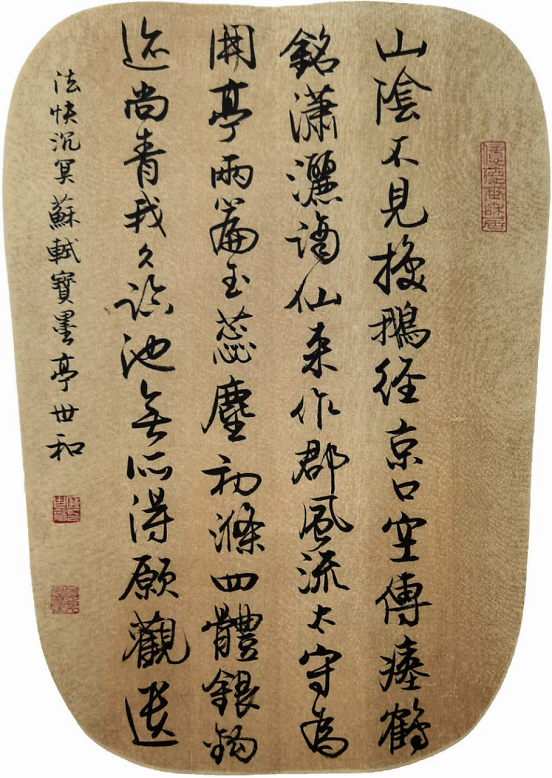 山陰不見換鵝經京口空傳瘞鶴
銘瀟灑謫仙來作郡風流太守為
開亭兩篇玉蕊塵初滌四體銀鉤
迹尚青我久臨池無所得願觀遺
法快沉冥蘇軾寶墨亭世和